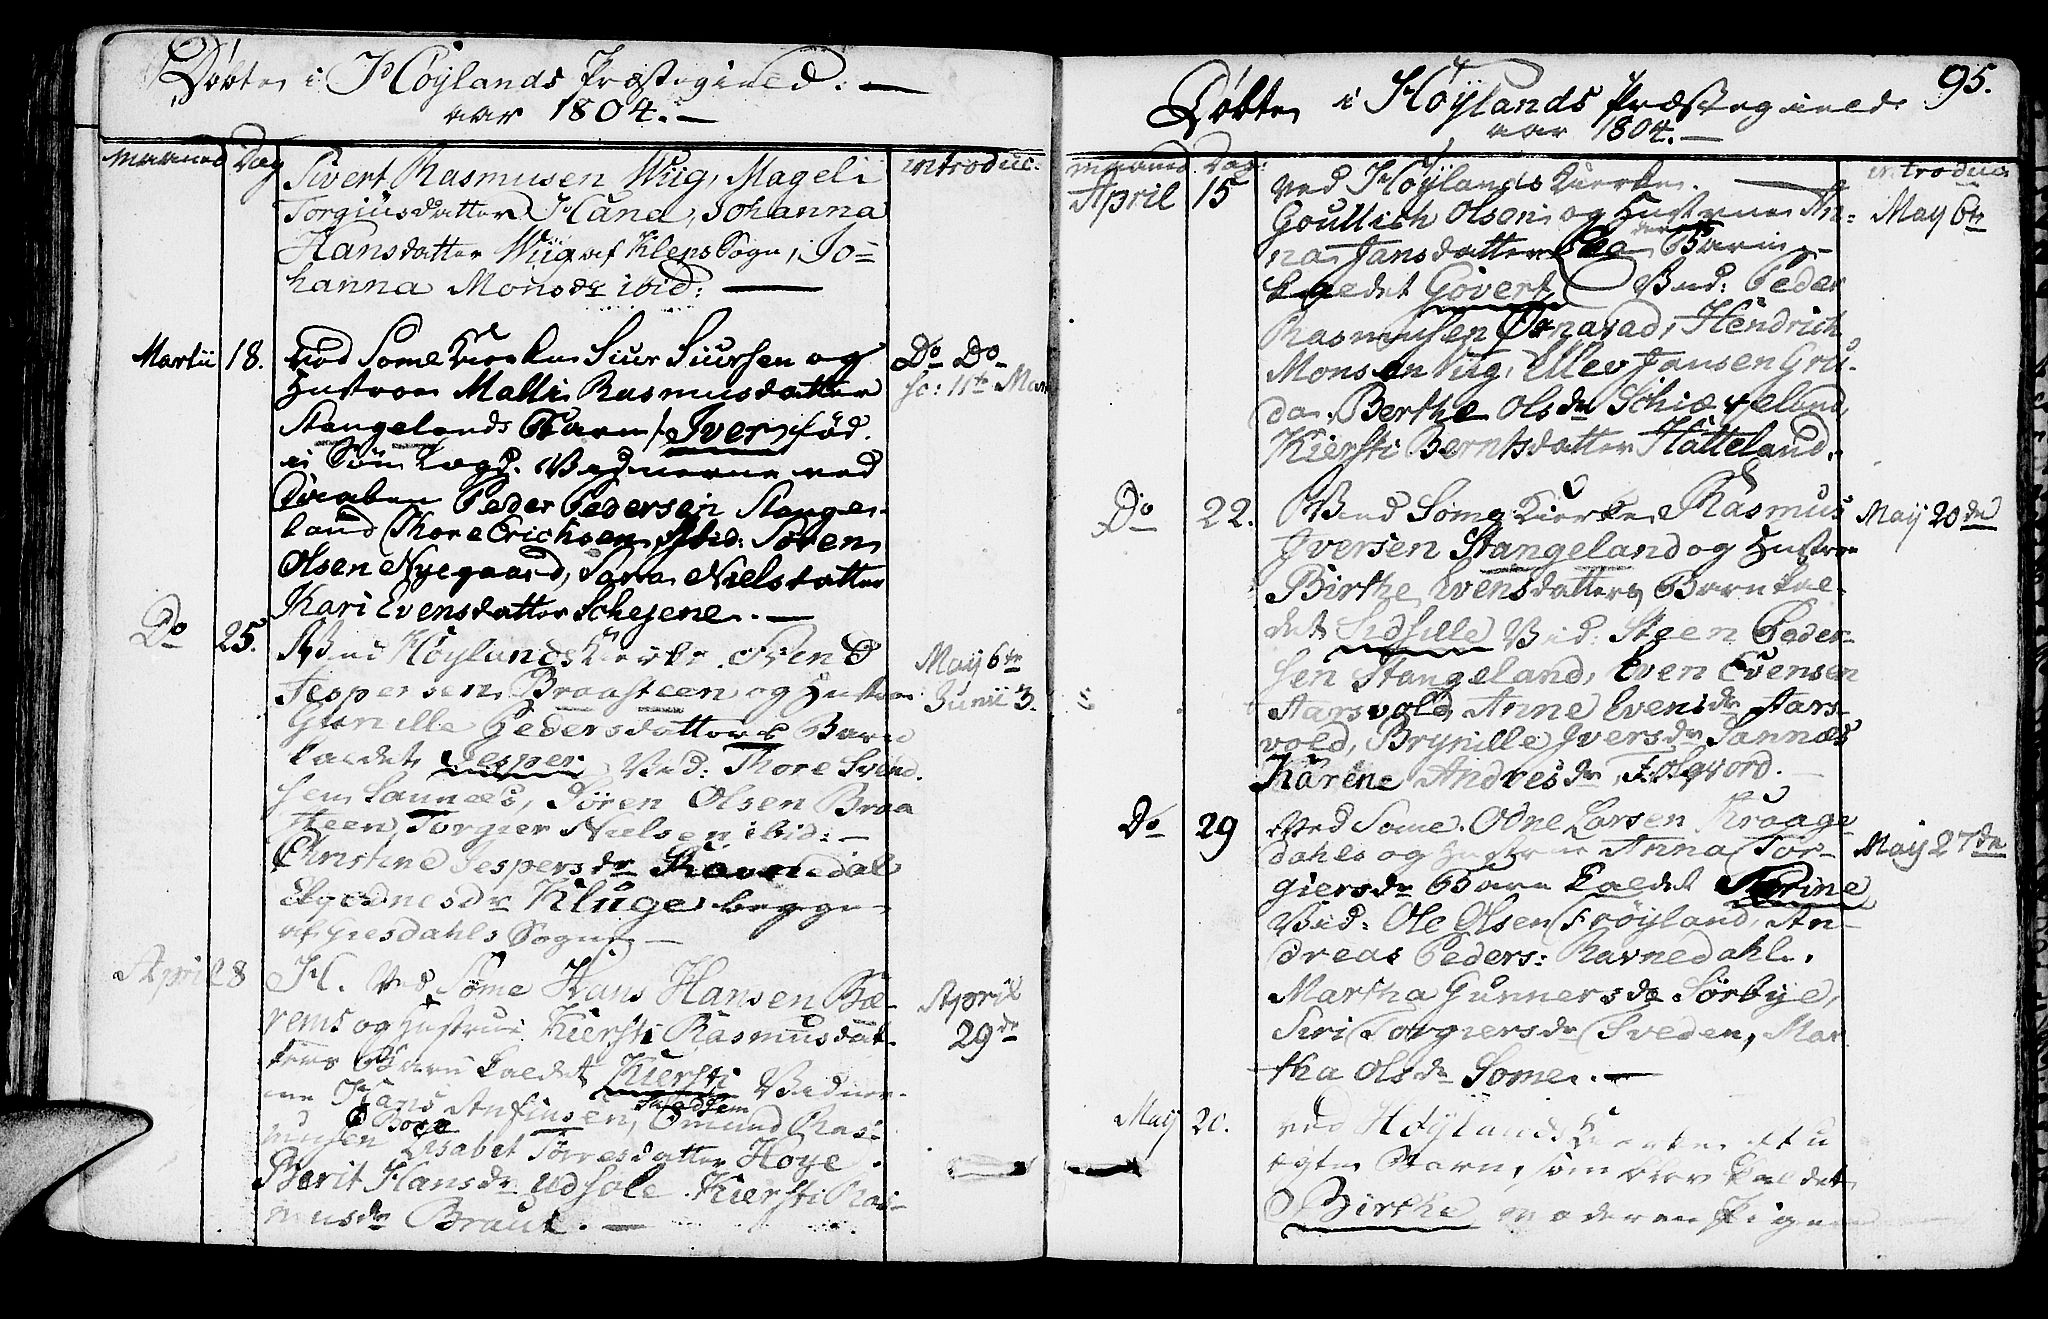 Døbte i Høylands Præstegield: —
aar 1804. —
Maaned Dag introduc:
Sivert Rasmusen Wiig, Mageli
Torgiusdatter Hana, Johanna
Hansdatter Wiig af Kleps Sogn, Jo=
hanna Monsdr ibid: —
Martii 18. Ved Some Kierke Siur Siursen og Do Do
Hustroe Malli Rasmusdatter sc: 11te Mar
Stangelands Barn Iver, fød
i Lægd. Vidnerne ved
Daaben Peder Pedersen Stange-
land Thore Erichsen ibid: Søren
Olsen Nyegaard, Sara Nielsdatter
Kari Evensdatter Schejene. —
Do 25. Ved Høylands Kierke Svend
Jespersen Braasteen og Hustroe May 6te
Gunille Pedersdatters Barn Junii 3.
kaldet Jesper Vid: Thore Svend-
sen Sannæs, Søren Olsen Braa
steen, Torgier Nielsen ibid: —
Christine Jespersdr Ravnedal
Kluge begge
af Giesdahls Sogn —
April 8 H. Ved Some Hans Hansen Bæ- April
rems og Hustrue Kiersti Rasmusdat- 29de
ters Barn kaldet Kiersti Vidner-
ne Hans Anfinsen, Omund Ras-
musen Bore Lisabet Torresdatter Hoye
Berit Hansdr Udsole. Kiersti Ras-
musdr Braut. —
95.
Døbte i Høylands Præstegield
aar 1804. —
Maaned Dag: introduc
April 15 Ved Høylands Kierke. — May 6te
Goullich Olsen og Hustrue An=
na Jansdatter Barn
kaldet Govert Vid: Peder
Rasmussen Hendrich
Monsen Wiig, Ellev Jansen Gru-
da. Berthe Olsdr Schiæveland,
Kiersti Berntsdatter Hatteland.
Do 22. Ved Some Kierke Rasmus May 20de
Iversen Stangeland og Hustroe
Birthe Evensdatters Barn kal-
det Sidsille Vid: Steen Peder-
sen Stangeland, Even Evensen
Aarsvold, Anne Evensdr Aars-
vold, Brynille Iversdr Sannæs
Karene Andresdr Folqvord. —
Do 29 Ved Some. Odne Larsen Kraage May 27de
dahls og Hustrue Anna Tor-
giersdr Barn kaldet
Vid: Ole Olsen Frøyland, An-
dreas Peders: Ravnedahl.
Martha Gunnersdr Sørbye,
Siri Torgiersdr Sveden, Mar
tha Olsdr Some. —
May 20. ved Høylands Kierke et u
ægte Barn, som blev kaldet
Birthe moderen Pigen